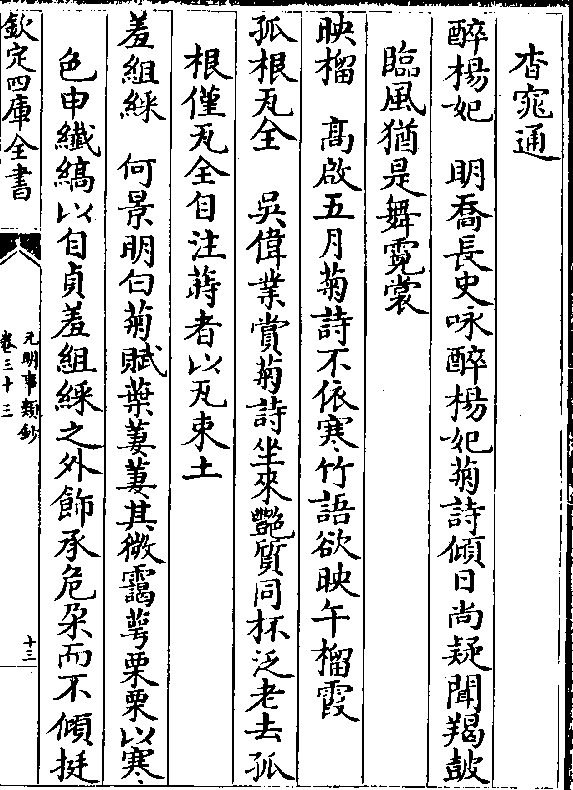 杳窕通
醉楊妃　明喬長史咏醉楊妃菊詩傾日尚疑聞羯鼓
臨風猶是舞霓裳
映榴　高啟五月菊詩不依寒竹語欲映午榴霞
孤根瓦全　吳偉業賞菊詩坐來艷質同杯泛老去孤
根僅瓦全自注蒔者以瓦束土
羞組綵　何景明白菊賦葉萋萋其微靄蕚栗栗以寒
色申纖縞以自貞羞組綵之外飾承危朶而不傾挺
欽定四庫全書
元明事類鈔
卷三十三
十三